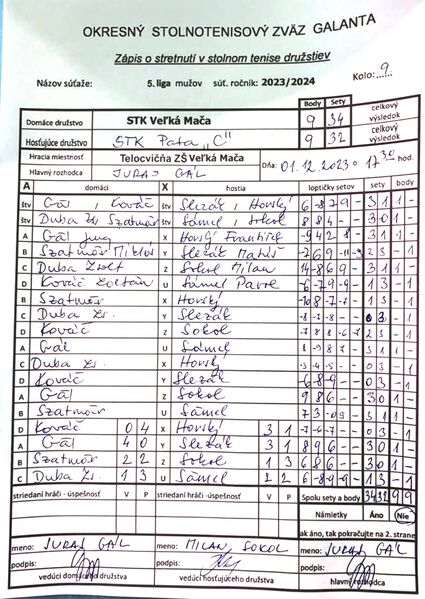 OKRESNÝ STOLNOTENISOVÝ ZVÄZ GALANTA
Zápis o stretnutí v stolnom tenise družstiev
Názov súťaže: 5. liga mužov súť. ročník: 2023/2024 Kolo: 9
Body Sety celkový
Domáce družstvo STK Veľká Mača 9 34 výsledok
Hosťujúce družstvo STK Pata "C" 9 32 celkový výsledok
Hracia miestnosť Telocvičňa ZŠ Veľká Mača Dňa: 01.12.2023 o 17 30 hod.
Hlavný rozhodca JURAJ GÁL
A domáci X hostia loptičky setov sety body
štv Gál, Kováč štv Slezák, Horský 6-879- 3 1 1 -
štv Duba Zs Szatmár štv Sámel, Sokol 884- 3 0 1 -
A Gál Juraj X Horský František -942 8 3 1 1 -
B Szatmár Mikloš Y Slezák Matúš 2 3 - 1
C Duba Zsolt Z Sokol Milan 14-869 3 1 1 -
D Kováč Zoltán U Sámel Pavol -6-79-9 1 3 - 1
B Szatmár X Horský -108 7-7- 1 3 - 1
C Duba Zs. Y Slezák 0 3 - 1
D Kováč Z Sokol 2 3 - 1
A Gál U Sámel 8-987 3 1 1 -
C Duba Zs. X Horský -3-4-5- 0 3 - 1
D Kováč Y Slezák -6-8-9- 0 3 - 1
A Gál Z Sokol 986 3 0 1 -
B Szatmár U Sámel 3 1 1 -
D Kováč 0 4 X Horský 3 1 -7-6-6- 0 3 - 1
A Gál 4 0 Y Slezák 3 1 896 3 0 1 -
B Szatmár 2 2 Z Sokol 1 3 686 3 0 1 -
C Duba Zs. 1 3 U Sámel 2 2 6-8-9-9 1 3 - 1
striedaní hráči - úspešnosť V P striedaní hráči - úspešnosť V P Spolu sety a body 34 32 9 9
Námietky Áno Nie
ak áno, tak pokračujte na 2. strane
meno: JURAJ GÁL meno: MILAN SOKOL meno: JURAJ GÁL
podpis: podpis: podpis:
vedúci domáceho družstva vedúci hosťujúceho družstva hlavný rozhodca